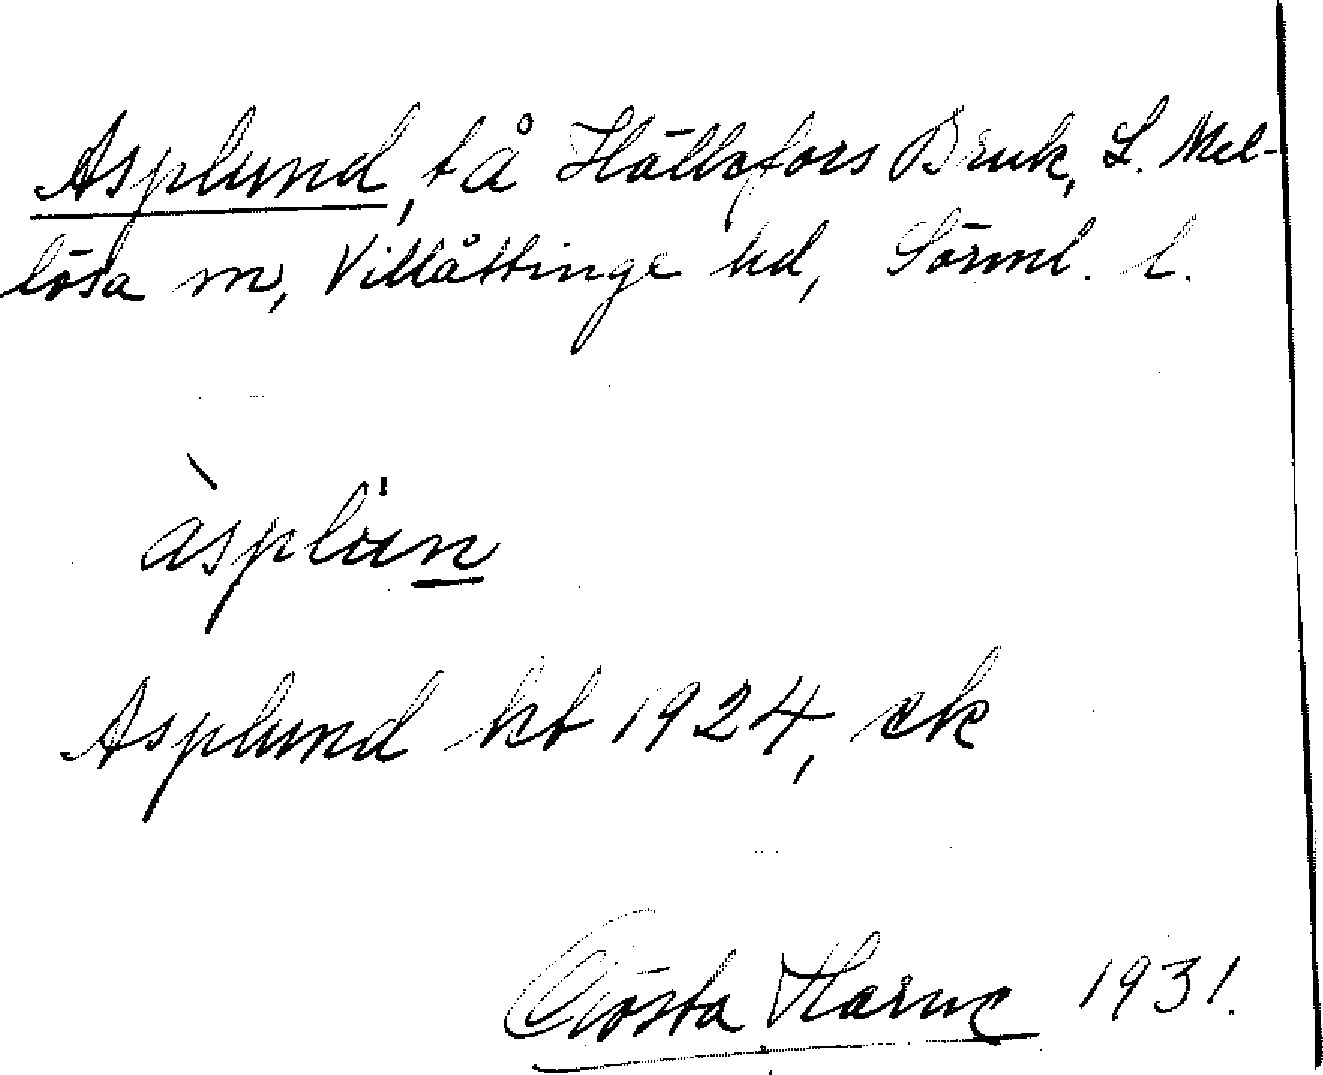 Asplund, t å Hällefors Bruk, L. Mel-
lösa sn, Villåttinge hd, Sörml. l.
àsplu̇n
Asplund kt 1924, ek
Gösta Harne 1931.